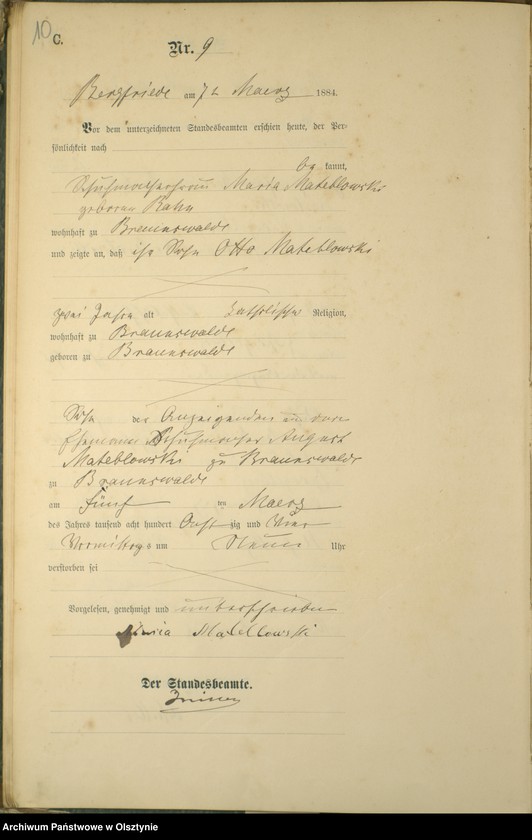 10
C.
Nr. 9
Bergfriede am 7t Maerz 1884.
Vor dem unterzeichneten Standesbeamten erschien heute, der Per-
sönlichkeit nach
be kannt,
Schuhmacherfrau Maria Mateblowski
geboren
wohnhaft zu Braunswalde
und zeigte an, daß ihr Sohn Otto Mateblowski
zwei Jahre alt katholischer Religion,
wohnhaft zu Braunswalde
geboren zu Braunswalde
Sohn der Anzeigenden und deren
Ehemann Schuhmacher August
Mateblowski zu Braunswalde
zu Braunswalde
am fünf ten Maerz
des Jahres tausend acht hundert Acht zig und Vier
Vormittags um Neun Uhr
verstorben sei
Vorgelesen, genehmigt und unterschrieben
Maria Mateblowski
Der Standesbeamte.
Archiwum Państwowe w Olsztynie